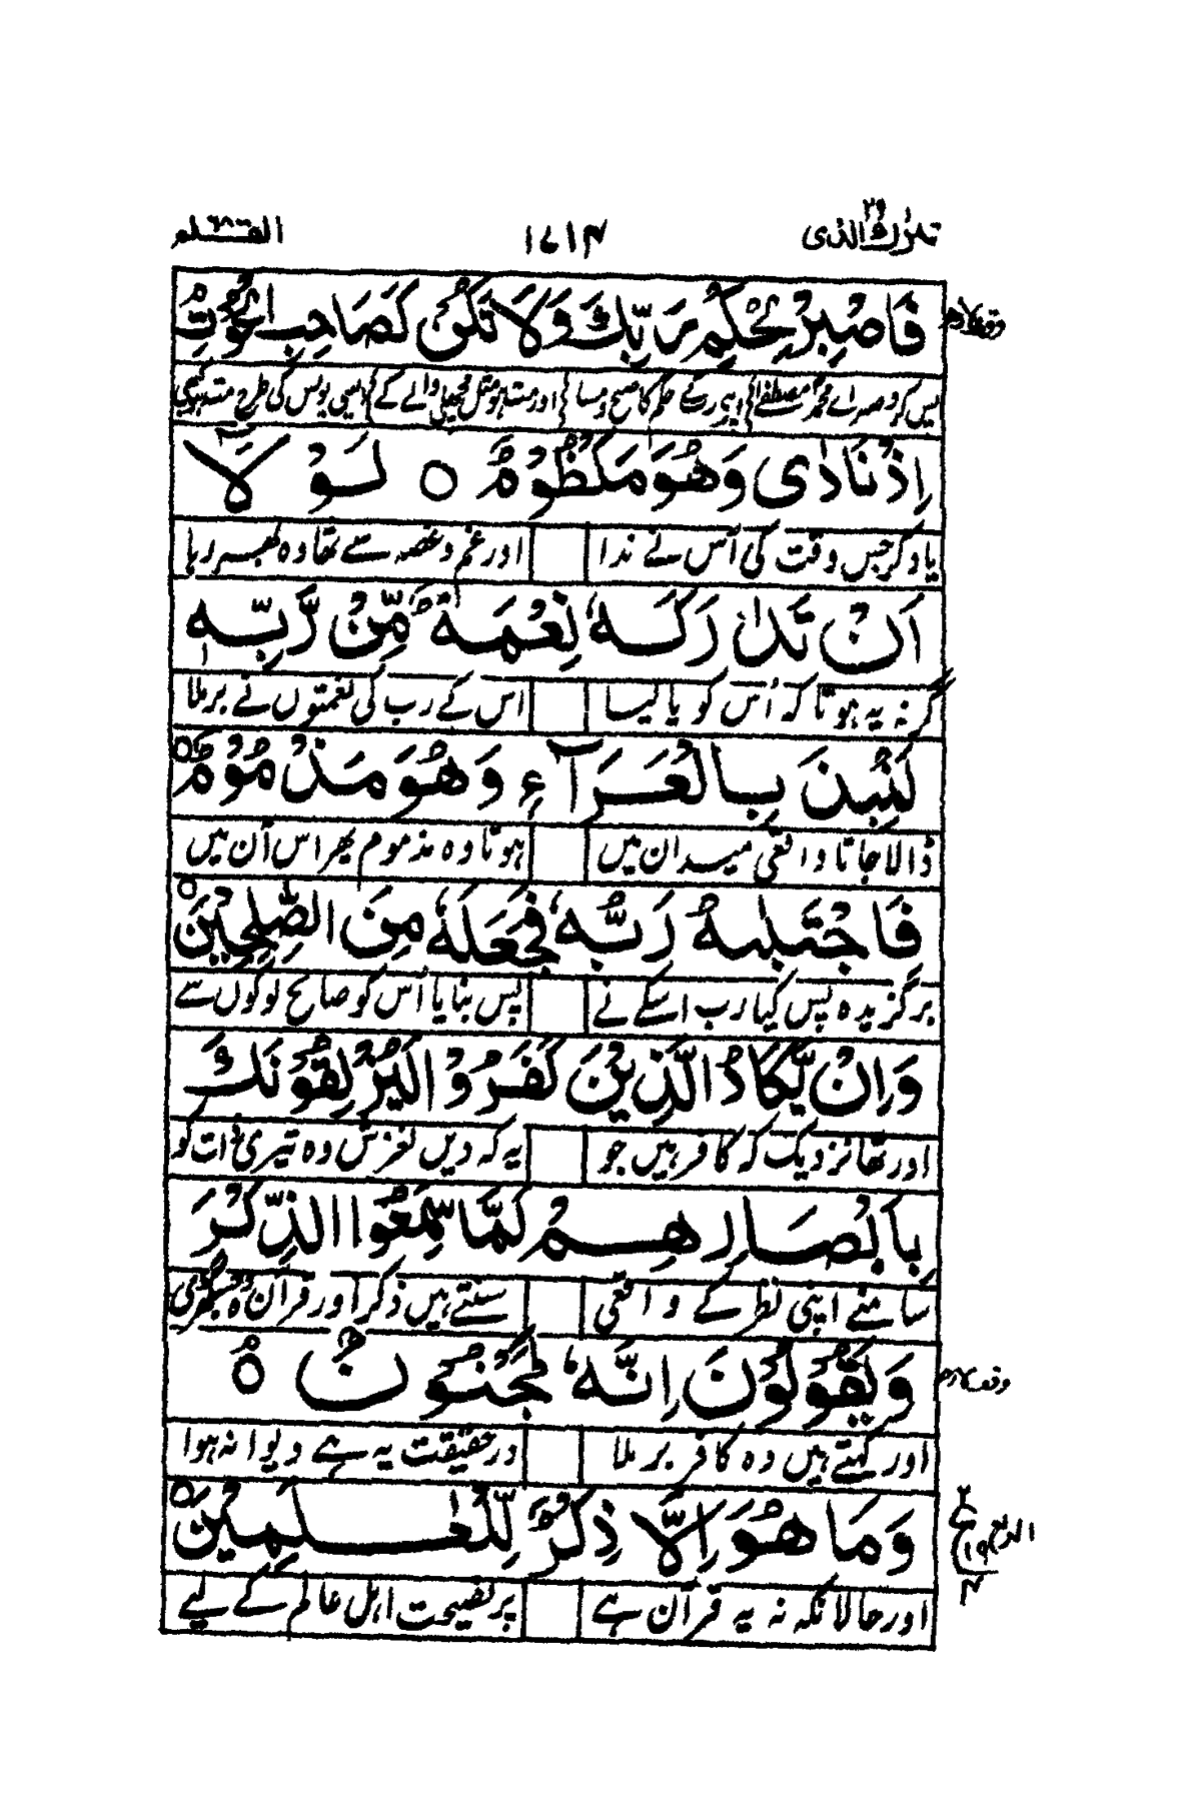 تبٰرك الذی ٢٩ ١٧١٤ القلم ٦٨
فَاصْبِرْ لِحُكْمِ رَبِّكَ وَلَا تَكُنْ كَصَاحِبِ الْحُوْتِ
پس کرو صبر اے محمد مصطفےٰ اپنے رب کے حکم کا صبح و مسا اور مت ہو مثل مچھلی والے کے یعنی یونس کی طرح مت
اِذْ نَادٰى وَهُوَ مَكْظُوْمٌ ○ لَوْ لَآ
یاد کر جس وقت کی اُس نے ندا اور غم و غصہ سے تھا وہ بھر رہا
اَنْ تَدٰرَكَهٗ نِعْمَةٌ مِّنْ رَّبِّهٖ
گر نہ یہ ہوتا کہ اُس کو پا لیا اس کے رب کی نعمتوں نے برملا
لَنُبِذَ بِالْعَرَآءِ وَهُوَ مَذْمُوْمٌ ○
ڈالا جاتا واقعی میدان میں ہوتا وہ مذموم پھر اس آن میں
فَاجْتَبٰىهُ رَبُّهٗ فَجَعَلَهٗ مِنَ الصّٰلِحِيْنَ ○
برگزیدہ پس کیا رب اسکے نے پس بنایا اُس کو صالح لوگوں سے
وَاِنْ يَّكَادُ الَّذِيْنَ كَفَرُوْا لَيُزْلِقُوْنَكَ
اور تھا نزدیک کہ کافر ہیں جو یہ کہ دیں لغزش وہ تیری ذات کو
بِاَبْصَارِهِمْ لَمَّا سَمِعُوا الذِّكْرَ
سامنے اپنی نظر کے واقعی سنتے ہیں ذکر اور قرآن
وَيَقُوْلُوْنَ اِنَّهٗ لَمَجْنُوْنٌ ○ۘ
اور کہتے ہیں وہ کافر برملا در حقیقت یہ ہے دیوانہ ہوا
وَمَا هُوَ اِلَّا ذِكْرٌ لِّلْعٰلَمِيْنَ ○
اور حالانکہ نہ یہ قرآن ہے پر نصیحت اہل عالم کے لیے
وقف لازم
وقف لازم